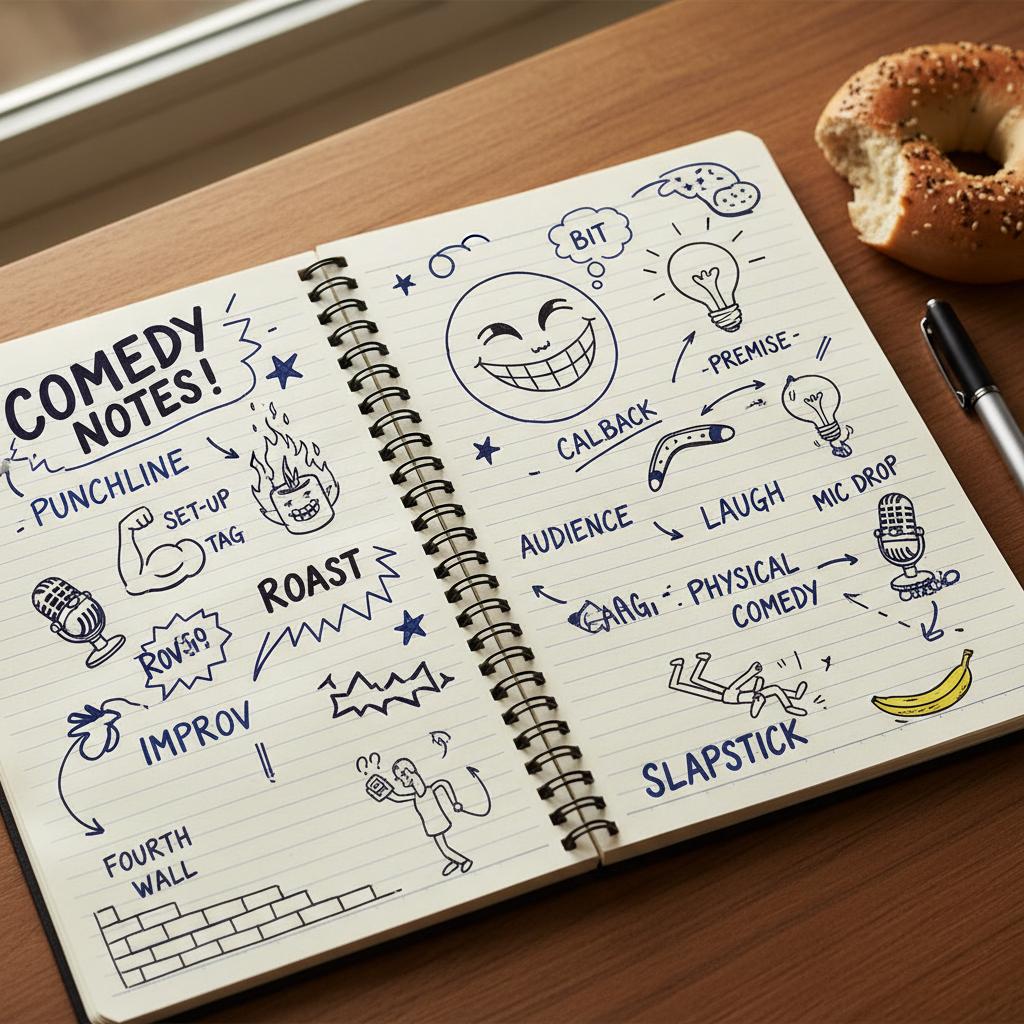 COMEDY
NOTES!
PUNCHLINE
SET-UP
TAG
ROAST
IMPROV
??
FOURTH
WALL
BIT
-PREMISE-
CALBACK
AUDIENCE
LAUGH
MIC DROP
PHYSICAL
COMEDY
SLAPSTICK